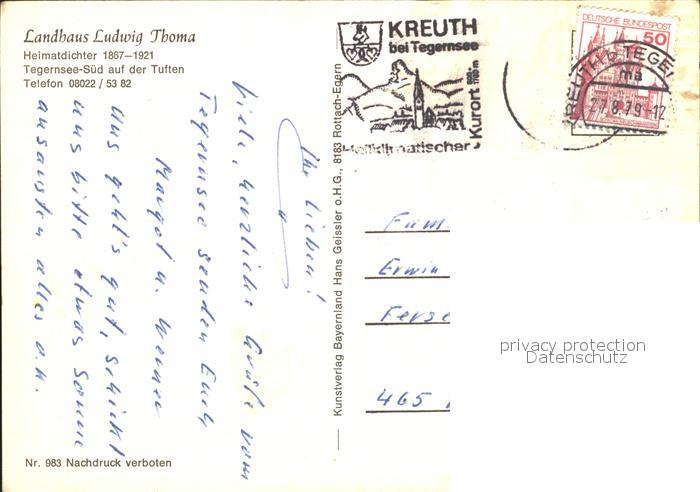 Landhaus Ludwig Thoma
Heimatdichter 1867—1921
Tegernsee-Süd auf der Tuften
Telefon 08022 / 53 82
Ihr Lieben!
Viele, herzliche Grüße vom
Tegernsee senden Euch
Margot u. Werner
Uns geht's gut, schickt
uns bitte etwas Sonne
ansonsten alles o.k.
Nr. 983 Nachdruck verboten
Kunstverlag Bayernland Hans Geissler o.H.G., 8183 Rottach-Egern
KREUTH
bei Tegernsee
Heilklimatischer
Kurort
DEUTSCHE BUNDESPOST
50
KREUTH b TEGE
ma
27.8.79-12
Fam.
Erwin
Ferse
465
privacy protection
Datenschutz